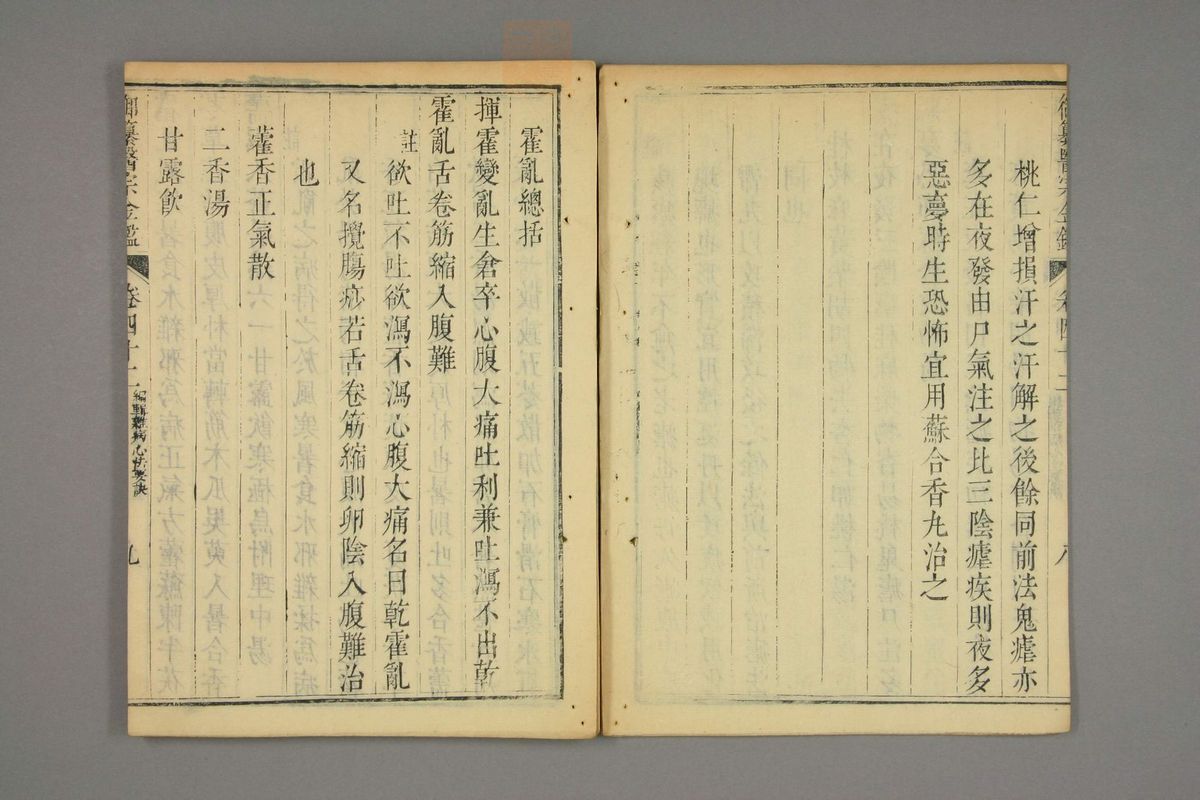 御纂醫宗金鑑 卷四十二 八
桃仁增損汗之汗解之後餘同前法鬼瘧亦
多在夜發由尸氣注之比三陰瘧疾則夜多
惡夢時生恐怖宜用蘇合香丸治之
霍亂總括
揮霍變亂生倉卒心腹大痛吐利兼吐瀉不出乾
霍亂舌卷筋縮入腹難
註欲吐不吐欲瀉不瀉心腹大痛名曰乾霍亂
又名攪腸痧若舌卷筋縮則卵陰入腹難治
也
藿香正氣散
二香湯
甘露飲
御纂醫宗金鑑 卷四十二 編輯雜病心法要訣 九